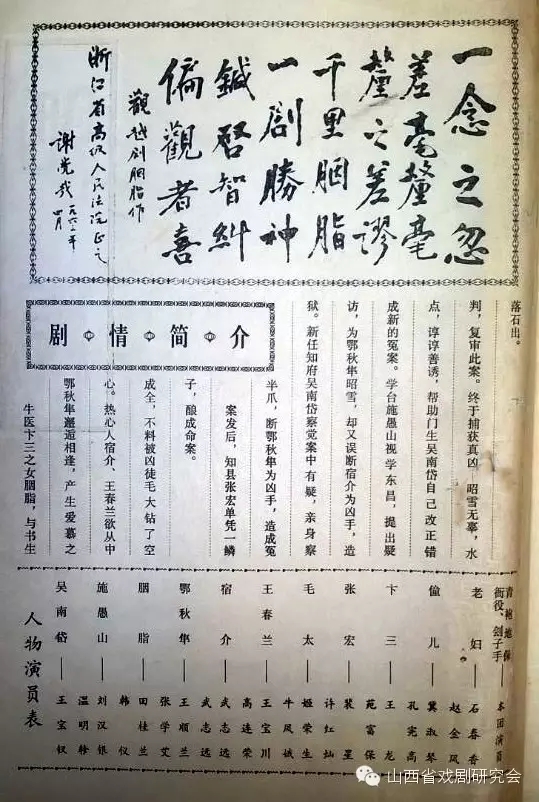 一念之忽
差毫釐毫
釐之差謬
千里胭脂
一劇勝神
鍼啓智糾
偏觀者喜
觀越剧胭脂作
浙江省高级人民法院正之
谢觉哉 一九六二年
四月
剧情简介
牛医卞三之女胭脂，与书生
鄂秋隼邂逅相逢，产生爱慕之
心。热心人宿介、王春兰欲从中
成全，不料被凶徒毛大钻了空
子，酿成命案。
案发后，知县张宏单凭一鳞
半爪，断鄂秋隼为凶手，造成冤
狱。新任知府吴南岱察觉案中有疑，亲身察
访，为鄂秋隼昭雪，却又误断宿介为凶手，造
成新的冤案。学台施愚山视学东昌，提出疑
点，谆谆善诱，帮助门生吴南岱自己改正错
判，复审此案。终于捕获真凶，昭雪无辜，水
落石出。
人物演员表
吴南岱——王宝钗
温明轸
施愚山——刘汉银
韩仪
胭脂——田桂兰
张学艾
鄂秋隼——王顺兰
武志远
宿介——武志远
高连荣
王春兰——王宝川
牛凤诚
毛太——姬荣生
许红灿
张宏——裴星
苑富保
卞三——王龙
孔宪高
偷儿——冀淑琴
赵金凤
老妇——石春香
青袍、地保、
衙役、刽子手——本团演员
山西省戏剧研究会